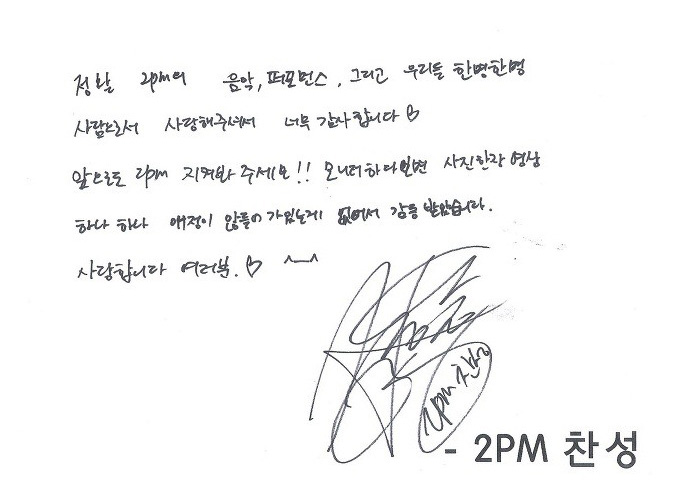 정말 2pm의 음악, 퍼포먼스, 그리고 우리들 한명한명
사람으로서 사랑해주셔서 너무 감사합니다♡
앞으로도 2pm 지켜봐 주세요!! 모니터하다보면 사진한장 영상
하나 하나 애정이 않들어가있는게 없어서 감동 받았습니다.
사랑합니다 여러분.♡ ^__^
2pm 찬성
- 2PM 찬성